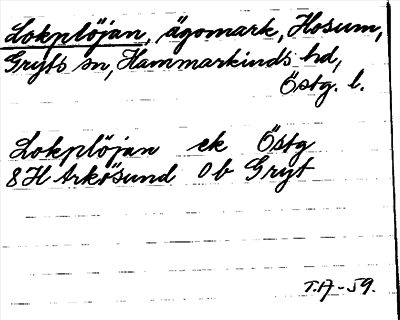 Lokplöjan, ägomark, Hosum,
Gryts sn, Hammarkinds hd,
Östg. l.
Lokplöjan ek Östg
8H Arkösund 0b Gryt
T.A-59.